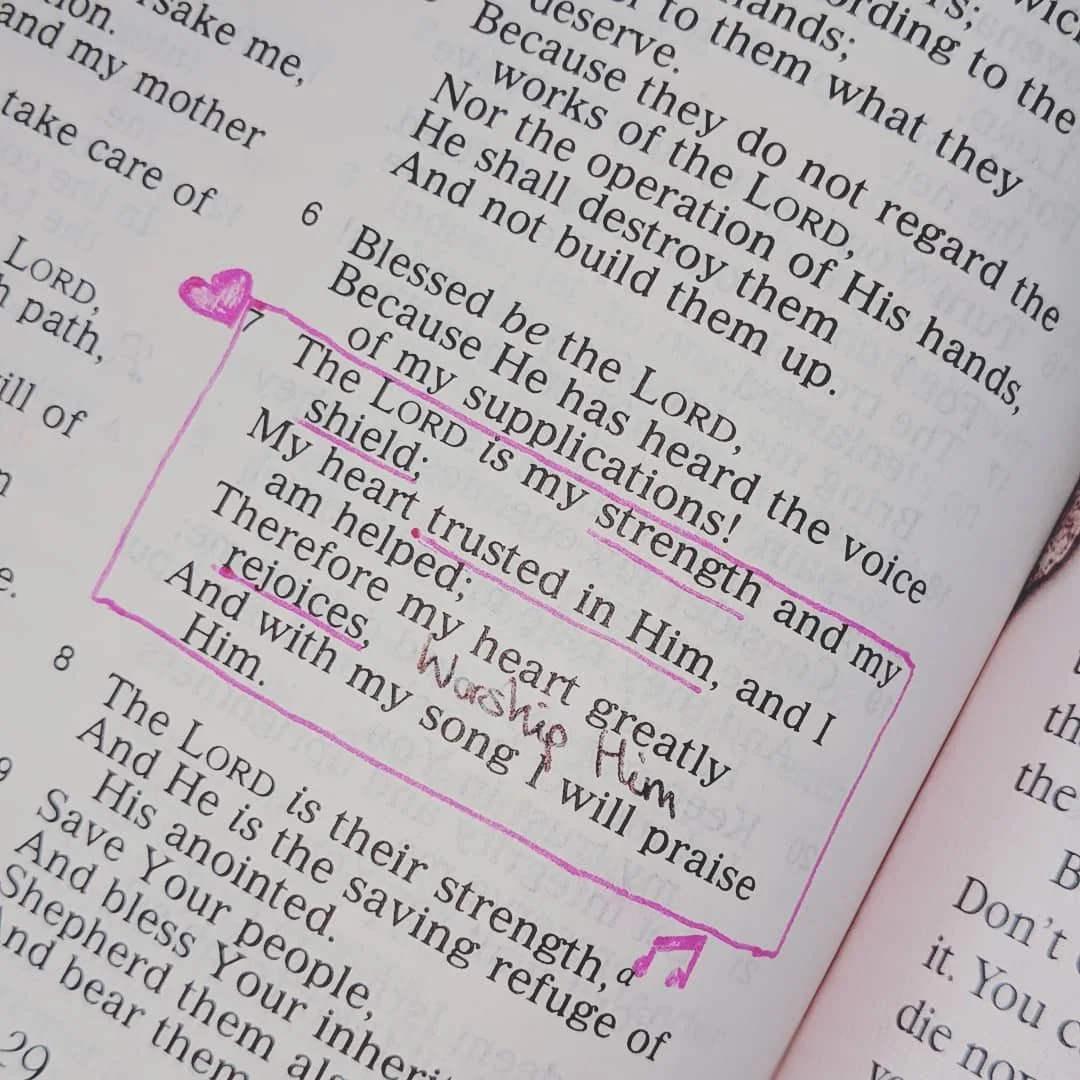 sake me,
ion.
and my mother
take care of
LORD,
path,
ill of
wick
rs;
ording to the
hands;
to them what they
deserve.
Because they do not regard the
works of the LORD,
Nor the operation of His hands,
He shall destroy them
And not build them up.
6 Blessed be the LORD,
Because He has heard the voice
of my supplications!
7 The LORD is my strength and my
shield;
My heart trusted in Him, and I
am helped;
Therefore my heart greatly
rejoices,
Worship Him
And with my song I will praise
Him.
8 The LORD is their strength,
And He is the saving refuge of
His anointed.
9 Save Your people,
And bless Your inherit
Shepherd them als
And bear them
29
th
the
B
Don't
it. You c
die no